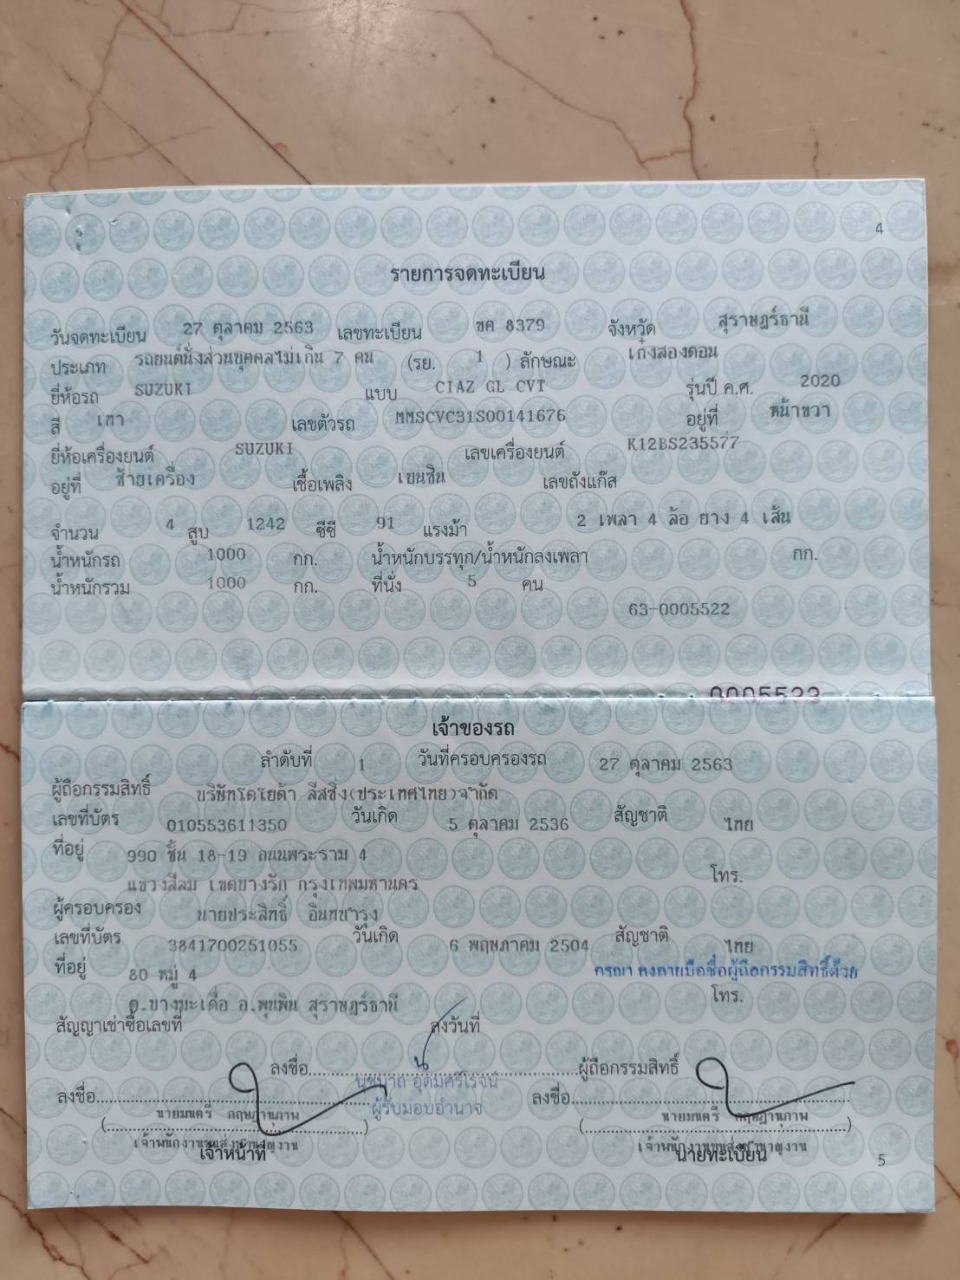 4
รายการจดทะเบียน
วันจดทะเบียน 27 ตุลาคม 2563 เลขทะเบียน ขค 8379 จังหวัด สุราษฎร์ธานี
ประเภท รถยนต์นั่งส่วนบุคคลไม่เกิน 7 คน (รย. 1 ) ลักษณะ เก๋งสองตอน
ยี่ห้อรถ SUZUKI แบบ CIAZ GL CVT รุ่นปี ค.ศ. 2020
สี เทา เลขตัวรถ MMSCVC31S00141676 อยู่ที่ หน้าขวา
ยี่ห้อเครื่องยนต์ SUZUKI เลขเครื่องยนต์ K12BS235577
อยู่ที่ ซ้ายเครื่อง เชื้อเพลิง เบนซิน เลขถังแก๊ส
จำนวน 4 สูบ 1242 ซีซี 91 แรงม้า 2 เพลา 4 ล้อ ยาง 4 เส้น
น้ำหนักรถ 1000 กก. น้ำหนักบรรทุก/น้ำหนักลงเพลา กก.
น้ำหนักรวม 1000 กก. ที่นั่ง 5 คน
63-0005522
0005523
เจ้าของรถ
ลำดับที่ 1 วันที่ครอบครองรถ 27 ตุลาคม 2563
ผู้ถือกรรมสิทธิ์ บริษัทโตโยต้า ลีสซิ่ง(ประเทศไทย)จำกัด
เลขที่บัตร 010553611350 วันเกิด 5 ตุลาคม 2536 สัญชาติ ไทย
ที่อยู่ 990 ชั้น 18-19 ถนนพระราม 4
แขวงสีลม เขตบางรัก กรุงเทพมหานคร โทร.
ผู้ครอบครอง นายประสิทธิ์ อินทบำรุง
เลขที่บัตร 3841700251055 วันเกิด 6 พฤษภาคม 2504 สัญชาติ ไทย
ที่อยู่ 80 หมู่ 4 กรุณา ลงลายมือชื่อผู้ถือกรรมสิทธิ์ด้วย
ต.บางมะเดื่อ อ.พุนพิน สุราษฎร์ธานี โทร.
สัญญาเช่าซื้อเลขที่ ลงวันที่
ลงชื่อ ผู้ถือกรรมสิทธิ์
นุชบาถ อุดมศรีโรจน์
ผู้รับมอบอำนาจ
ลงชื่อ ลงชื่อ
( นายมนตรี กฤษฎานุภาพ ) ( นายมนตรี กฤษฎานุภาพ )
เจ้าพนักงานขนส่งชำนาญงาน เจ้าพนักงานขนส่งชำนาญงาน
เจ้าหน้าที่ นายทะเบียน
5